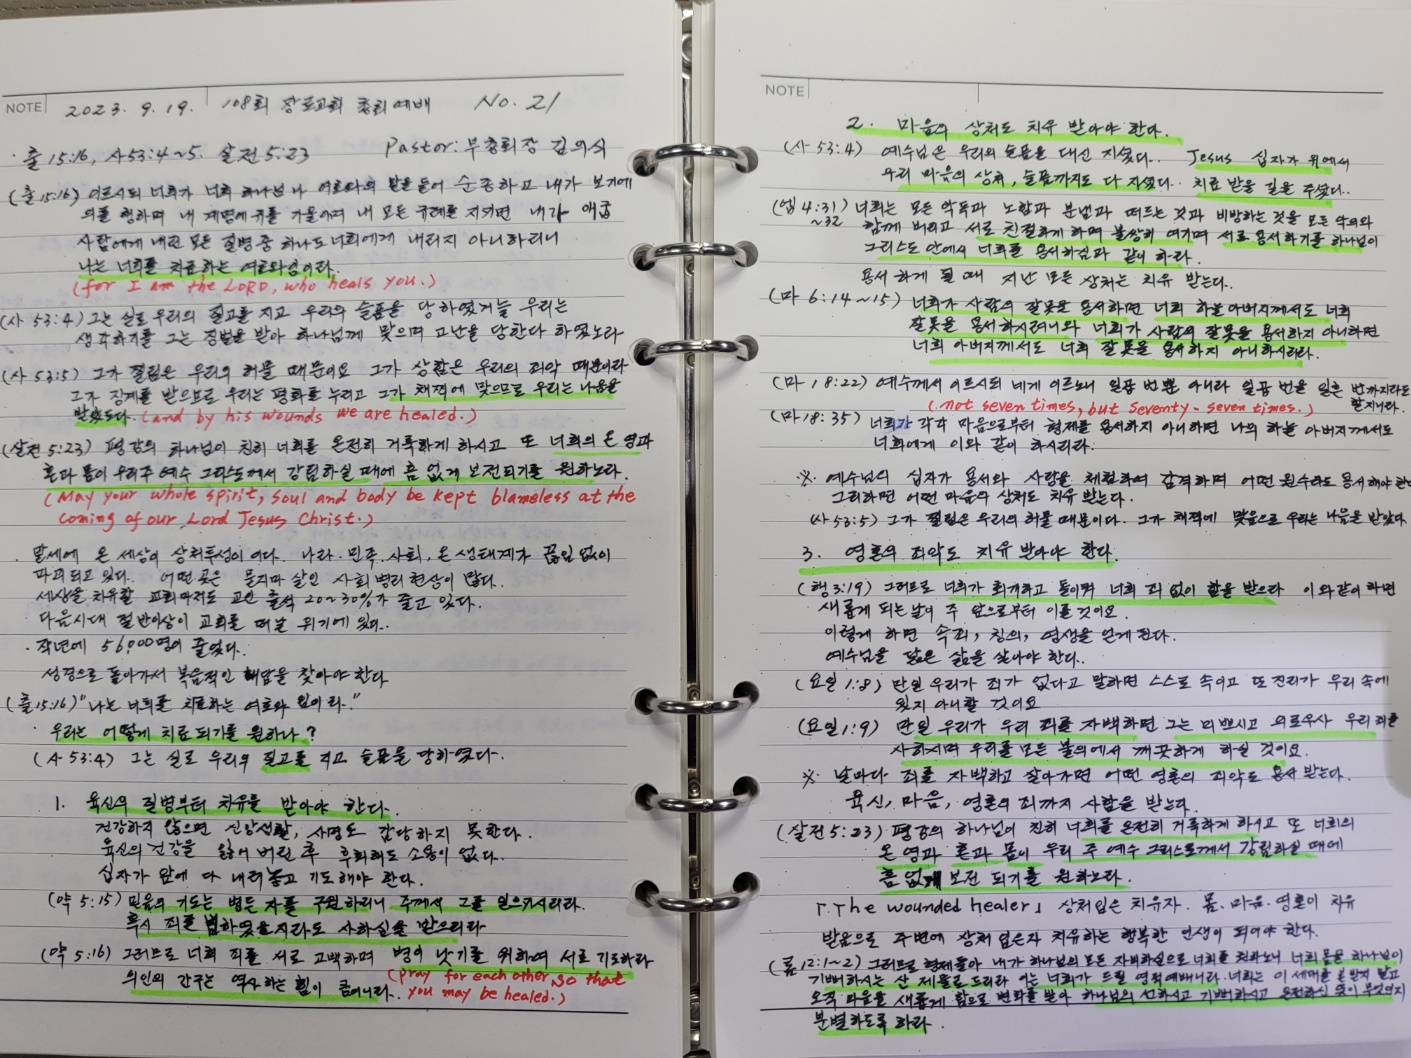 NOTE
2023. 9. 19. 108회 장로교회 총회예배 No. 21
· 출 15:16, 사 53:4~5. 살전 5:23 Pastor: 부총회장 김의식
(출 15:16) 이르시되 너희가 너희 하나님 나 여호와의 말을 들어 순종하고 내가 보기에
의를 행하며 내 계명에 귀를 기울이며 내 모든 규례를 지키면 내가 애굽
사람에게 내린 모든 질병 중 하나도 너희에게 내리지 아니하리니
나는 너희를 치료하는 여호와임이라.
(for I am the LORD, who heals you.)
(사 53:4) 그는 실로 우리의 질고를 지고 우리의 슬픔을 당하였거늘 우리는
생각하기를 그는 징벌을 받아 하나님께 맞으며 고난을 당한다 하였노라
(사 53:5) 그가 찔림은 우리의 허물 때문이요 그가 상함은 우리의 죄악 때문이라
그가 징계를 받으므로 우리는 평화를 누리고 그가 채찍에 맞으므로 우리는 나음을
받았도다. (and by his wounds we are healed.)
(살전 5:23) 평강의 하나님이 친히 너희를 온전히 거룩하게 하시고 또 너희의 온 영과
혼과 몸이 우리 주 예수 그리스도께서 강림하실 때에 흠 없게 보전되기를 원하노라.
(May your whole spirit, soul and body be kept blameless at the
coming of our Lord Jesus Christ.)
· 말세에 온 세상이 상처투성이 이다. 나라. 민족. 사회, 온 생태계가 끊임 없이
파괴되고 있다. 어떤 곳은 묻지마 살인 사회 병리 현상이 많다.
세상을 치유할 교회마저도 교인 출석 20~30%가 줄고 있다.
다음세대 절반이상이 교회를 떠날 위기에 있다.
· 작년에 56,000명이 줄었다.
성경으로 돌아가서 복음적인 해답을 찾아야 한다
(출 15:16) "나는 너희를 치료하는 여호와 임이라."
· 우리는 어떻게 치료 되기를 원하나?
(사 53:4) 그는 실로 우리의 질고를 지고 슬픔을 당하였다.
1. 육신의 질병부터 치유를 받아야 한다.
건강하지 않으면 신앙생활, 사명도 감당하지 못한다.
육신의 건강을 잃어 버린 후 후회해도 소용이 없다.
십자가 앞에 다 내려놓고 기도해야 한다.
(약 5:15) 믿음의 기도는 병든 자를 구원하리니 주께서 그를 일으키시리라.
혹시 죄를 범하였을지라도 사하심을 받으리라
(약 5:16) 그러므로 너희 죄를 서로 고백하며 병이 낫기를 위하여 서로 기도하라
의인의 간구는 역사하는 힘이 큼이니라. (pray for each other so that
you may be healed.)
NOTE
2. 마음의 상처도 치유 받아야 한다.
(사 53:4) 예수님은 우리의 슬픔을 대신 지셨다. Jesus 십자가 위에서
우리 마음의 상처, 슬픔까지도 다 지셨다. 치료 받을 길을 주셨다.
(엡 4:31~32) 너희는 모든 악독과 노함과 분냄과 떠드는 것과 비방하는 것을 모든 악의와
함께 버리고 서로 친절하게 하며 불쌍히 여기며 서로 용서하기를 하나님이
그리스도 안에서 너희를 용서하심과 같이 하라.
용서 하게 될 때 지난 모든 상처는 치유 받는다.
(마 6:14~15) 너희가 사람의 잘못을 용서하면 너희 하늘 아버지께서도 너희
잘못을 용서하시려니와 너희가 사람의 잘못을 용서하지 아니하면
너희 아버지께서도 너희 잘못을 용서하지 아니하시리라.
(마 18:22) 예수께서 이르시되 네게 이르노니 일곱 번뿐 아니라 일곱 번을 일흔 번까지라도
(not seven times, but seventy-seven times.) 할지니라.
(마 18:35) 너희가 각각 마음으로부터 형제를 용서하지 아니하면 나의 하늘 아버지께서도
너희에게 이와 같이 하시리라.
※ 예수님의 십자가 용서와 사랑을 체험하며 감격하며 어떤 원수라도 용서해야 한다
그리하면 어떤 마음의 상처도 치유 받는다.
(사 53:5) 그가 찔림은 우리의 허물 때문이다. 그가 채찍에 맞음으로 우리는 나음을 받았다
3. 영혼의 죄악도 치유 받아야 한다.
(행 3:19) 그러므로 너희가 회개하고 돌이켜 너희 죄 없이 함을 받으라 이와같이 하면
새롭게 되는 날이 주 앞으로부터 이를 것이요.
이렇게 하면 속죄, 칭의, 영생을 얻게 된다.
예수님을 닮은 삶을 살아야 한다.
(요일 1:8) 만일 우리가 죄가 없다고 말하면 스스로 속이고 또 진리가 우리 속에
있지 아니할 것이요
(요일 1:9) 만일 우리가 우리 죄를 자백하면 그는 미쁘시고 의로우사 우리 죄를
사하시며 우리를 모든 불의에서 깨끗하게 하실 것이요.
※ 날마다 죄를 자백하고 살아가면 어떤 영혼의 죄악도 용서 받는다.
육신, 마음, 영혼의 죄까지 사함을 받는다.
(살전 5:23) 평강의 하나님이 친히 너희를 온전히 거룩하게 하시고 또 너희의
온 영과 혼과 몸이 우리 주 예수 그리스도께서 강림하실 때에
흠 없게 보전 되기를 원하노라.
「The wounded healer」 상처입은 치유자. 몸. 마음. 영혼이 치유
받음으로 주변에 상처 입은자 치유하는 행복한 인생이 되어야 한다.
(롬 12:1~2) 그러므로 형제들아 내가 하나님의 모든 자비하심으로 너희를 권하노니 너희 몸을 하나님이
기뻐하시는 산 제물로 드리라 이는 너희가 드릴 영적 예배니라. 너희는 이 세대를 본받지 말고
오직 마음을 새롭게 함으로 변화를 받아 하나님의 선하시고 기뻐하시고 온전하신 뜻이 무엇인지
분별하도록 하라.